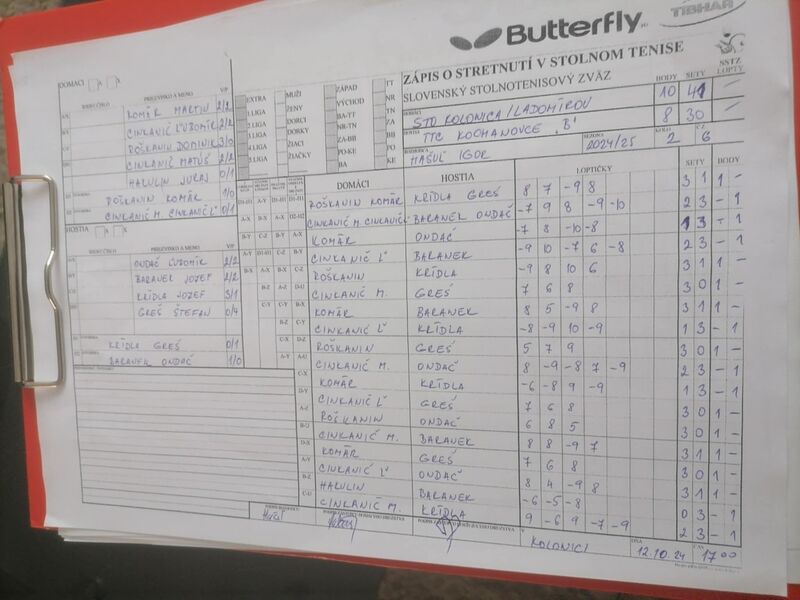 Butterfly
TIBHAR
ZÁPIS O STRETNUTÍ V STOLNOM TENISE
SLOVENSKÝ STOLNOTENISOVÝ ZVÄZ
BODY SETY SSTZ LOPTY
STO KOLONICA/LADOMIROV 10 41
TTC KOCHANOVCE "B" 8 30
MAŠUĽ IGOR SEZÓNA 2024/25 KOLO 2 6
EXTRA MUŽI ZÁPAD TT
1.LIGA ŽENY VÝCHOD NR
2.LIGA DORCI BA-TT TN
3.LIGA DORKY NR-TN ZA
4.LIGA ŽIACI ZA-BB BB
5.LIGA ŽIAČKY PO-KE PO
BA KE
DOMÁCI
PRIEZVISKO A MENO V/P
KOMÁR MARTIN 2/2
CINKANIČ ĽUBOMÍR 2/2
ROŠKANIN DOMINIK 3/0
CINKANIČ MATÚŠ 2/2
HAKULIN JURAJ 0/1
ROŠKANIN KOMÁR 1/0
CINKANIČ M. CINKANIČ Ľ 0/1
HOSTIA
PRIEZVISKO A MENO V/P
ONDAČ ĽUBOMÍR 2/2
BARANEK JOZEF 2/2
KRÍDLA JOZEF 3/1
GREŠ ŠTEFAN 0/4
KRÍDLA GREŠ 0/1
BARANEK ONDAČ 1/0
DOMÁCI HOSTIA LOPTIČKY SETY BODY
ROŠKANIN KOMÁR KRÍDLA GREŠ 8 7 -9 8 3 1 1 -
CINKANIČ M. CINKANIČ Ľ BARANEK ONDAČ -7 9 8 -9 -10 2 3 - 1
KOMÁR ONDAČ -7 8 -10 -8 1 3 - 1
CINKANIČ Ľ BARANEK -9 10 -7 6 -8 2 3 - 1
ROŠKANIN KRÍDLA -9 8 10 6 3 1 1 -
CINKANIČ M. GREŠ 7 6 8 3 0 1 -
KOMÁR BARANEK 8 5 -9 8 3 1 1 -
CINKANIČ Ľ KRÍDLA -8 -9 10 -9 1 3 - 1
ROŠKANIN GREŠ 5 7 9 3 0 1 -
CINKANIČ M. ONDAČ 8 -9 -8 7 -9 2 3 - 1
KOMÁR KRÍDLA -6 -8 9 -9 1 3 - 1
CINKANIČ Ľ GREŠ 7 6 8 3 0 1 -
ROŠKANIN ONDAČ 6 8 5 3 0 1 -
CINKANIČ M. BARANEK 8 8 -9 7 3 1 1 -
KOMÁR GREŠ 7 6 8 3 0 1 -
CINKANIČ Ľ ONDAČ 8 4 -9 8 3 1 1 -
HAKULIN BARANEK -6 -5 -8 0 3 - 1
CINKANIČ M. KRÍDLA 9 -6 9 -7 -9 2 3 - 1
V KOLONICI DŇA 12.10.24 17 00